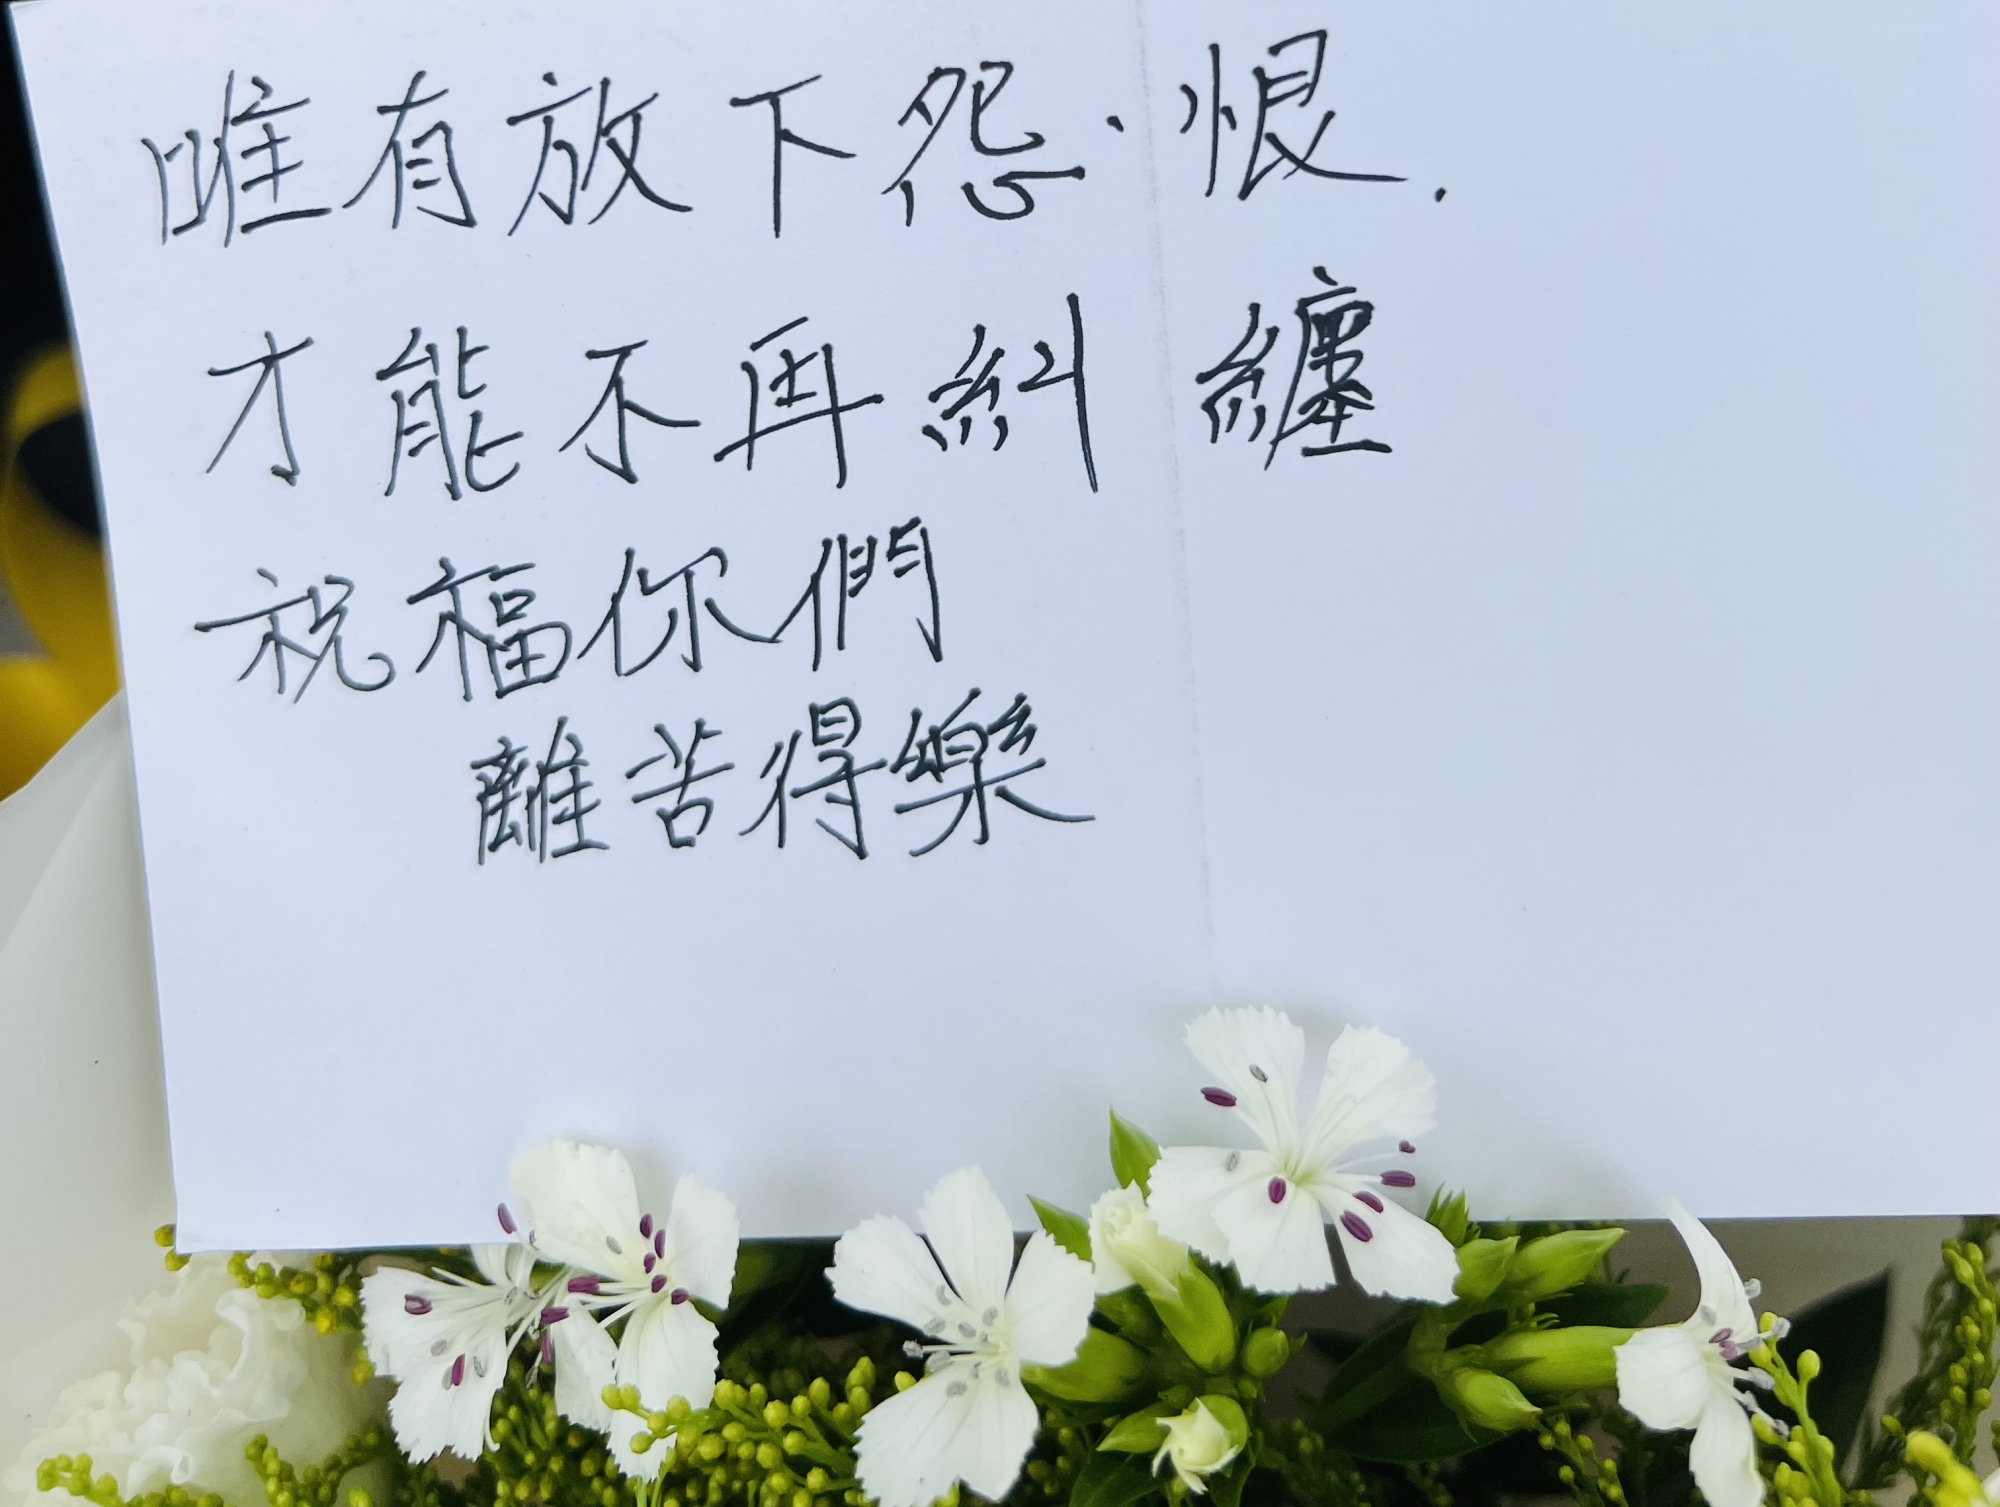 唯有放下怨．恨．
才能不再糾纏
祝福你們
離苦得樂